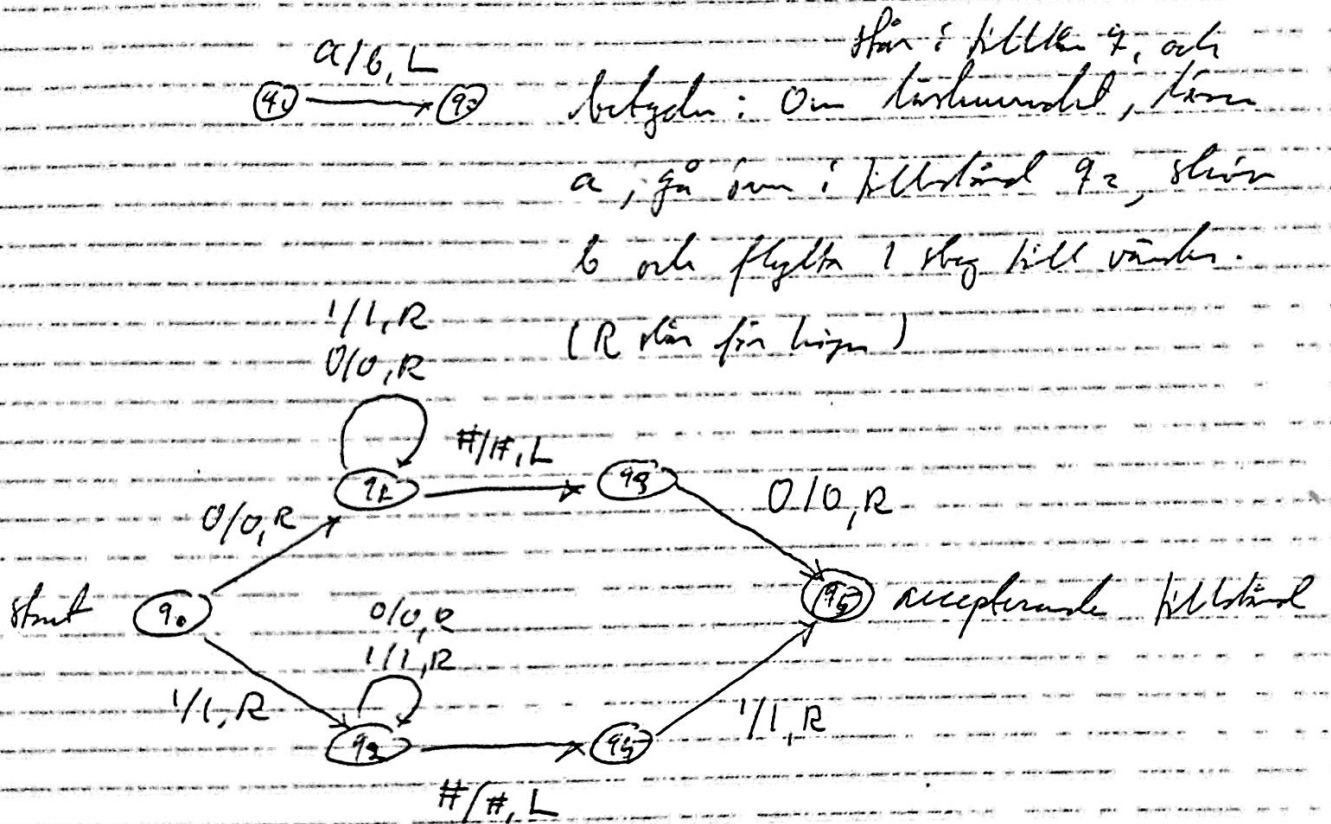 står i tillstånd q, och
a/b, L
betyder: Om läshuvudet, läser
a, gå över i tillstånd q2, skriv
b och flytta 1 steg till vänster.
(R står för höger)
1/1, R
0/0, R
#/#, L
q1
q3
0/0, R
0/0, R
start
q0
q5
accepterande tillstånd
0/0, R
1/1, R
1/1, R
1/1, R
q2
q4
#/#, L